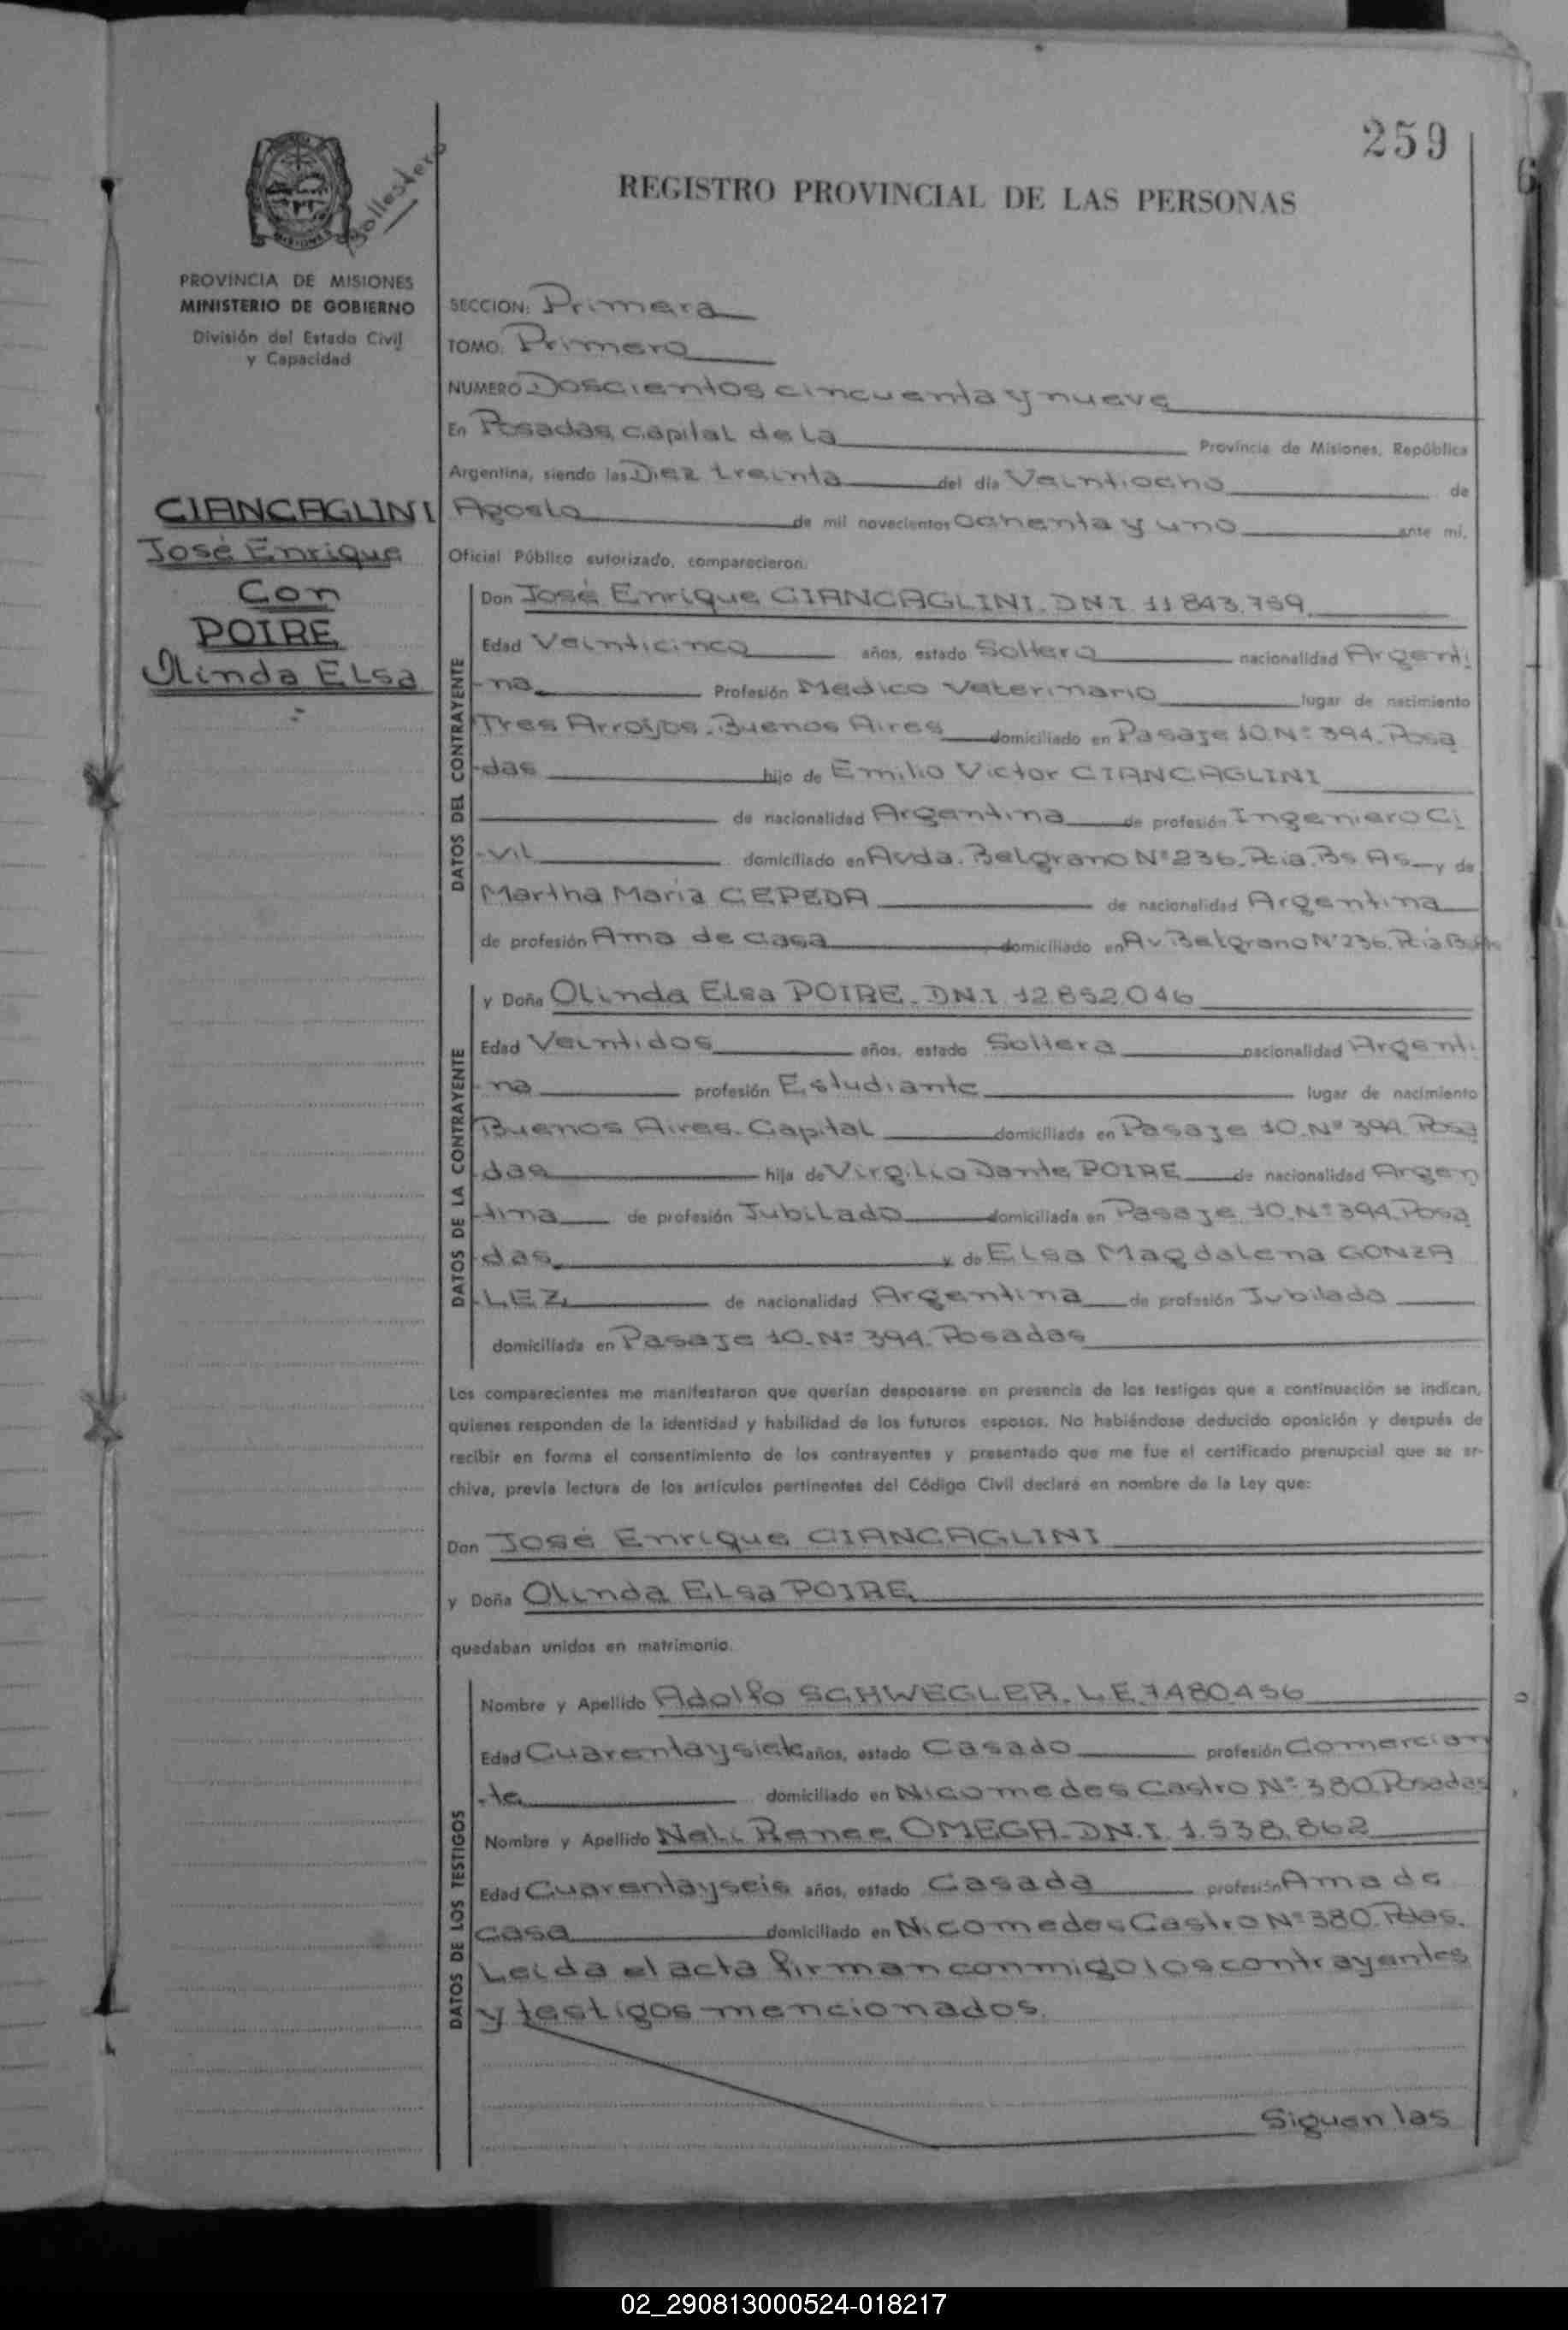 259
REGISTRO PROVINCIAL DE LAS PERSONAS
Ballestero
PROVINCIA DE MISIONES
MINISTERIO DE GOBIERNO
División del Estado Civil
y Capacidad
CIANCAGLINI
José Enrique
Con
POIRE
Olinda Elsa
SECCION: Primera
TOMO: Primero
NUMERO Doscientos cincuenta y nueve
En Posadas, capital de La Provincia de Misiones, República
Argentina, siendo las Diez treinta del día Veintiocho de
Agosto de mil novecientos Ochenta y uno ante mi,
Oficial Público autorizado, comparecieron:
DATOS DEL CONTRAYENTE
Don José Enrique CIANCAGLINI. DNI 11.843.759
Edad Veinticinco años, estado Soltero nacionalidad Argenti
-na Profesión Medico Veterinario lugar de nacimiento
Tres Arroyos. Buenos Aires domiciliado en Pasaje 10. Nº 394. Posa
-das hijo de Emilio Victor CIANCAGLINI
de nacionalidad Argentina de profesión Ingeniero Ci
-vil domiciliado en Avda. Belgrano Nº 236. Pcia. Bs. As. y de
Martha Maria CEPEDA de nacionalidad Argentina
de profesión Ama de casa domiciliado en Av. Belgrano Nº 236. Pcia Bs. As
DATOS DE LA CONTRAYENTE
y Doña Olinda Elsa POIRE. DN.I. 12.852.046
Edad Veintidos años, estado Soltera nacionalidad Argenti
-na profesión Estudiante lugar de nacimiento
Buenos Aires. Capital domiciliada en Pasaje 10. Nº 394. Posa
-das hija de Virgilio Dante POIRE de nacionalidad Argen
-tina de profesión Jubilado domiciliada en Pasaje 10. Nº 394. Posa
-das. y de Elsa Magdalena GONZA
-LEZ de nacionalidad Argentina de profesión Jubilada
domiciliada en Pasaje 10. Nº 394. Posadas
Los comparecientes me manifestaron que querían desposarse en presencia de los testigos que a continuación se indican,
quienes responden de la identidad y habilidad de los futuros esposos. No habiéndose deducido oposición y después de
recibir en forma el consentimiento de los contrayentes y presentado que me fue el certificado prenupcial que se ar-
chiva, previa lectura de los artículos pertinentes del Código Civil declaré en nombre de la Ley que:
Don José Enrique CIANCAGLINI
y Doña Olinda Elsa POIRE
quedaban unidos en matrimonio.
DATOS DE LOS TESTIGOS
Nombre y Apellido Adolfo SCHWEGLER. L.E. 7480456
Edad Cuarenta y siete años, estado Casado profesión Comercian
-te domiciliado en Nicomedes Castro Nº 380. Posadas
Nombre y Apellido Neli Renee OMEGA. DN.I. 1.538.862
Edad Cuarenta y seis años, estado Casada profesión Ama de
casa domiciliado en Nicomedes Castro Nº 380. Pdas.
Leida el acta firman conmigo los contrayentes
y testigos mencionados.
Siguen las
02_290813000524-018217